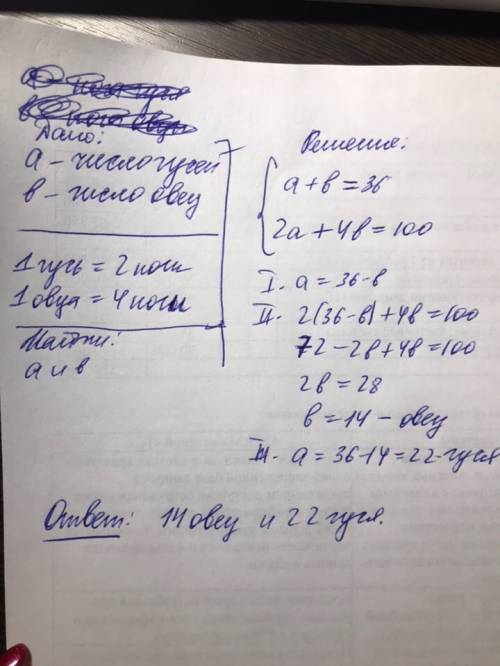 Дано:
а – число гусей
в – число овец
1 гусь = 2 ноги
1 овца = 4 ноги
Найти:
а и в
Решение:
а + в = 36
2а + 4в = 100
I. а = 36 - в
II. 2(36 - в) + 4в = 100
72 - 2в + 4в = 100
2в = 28
в = 14 – овец
III. а = 36 - 14 = 22 - гуся
Ответ: 14 овец и 22 гуся.